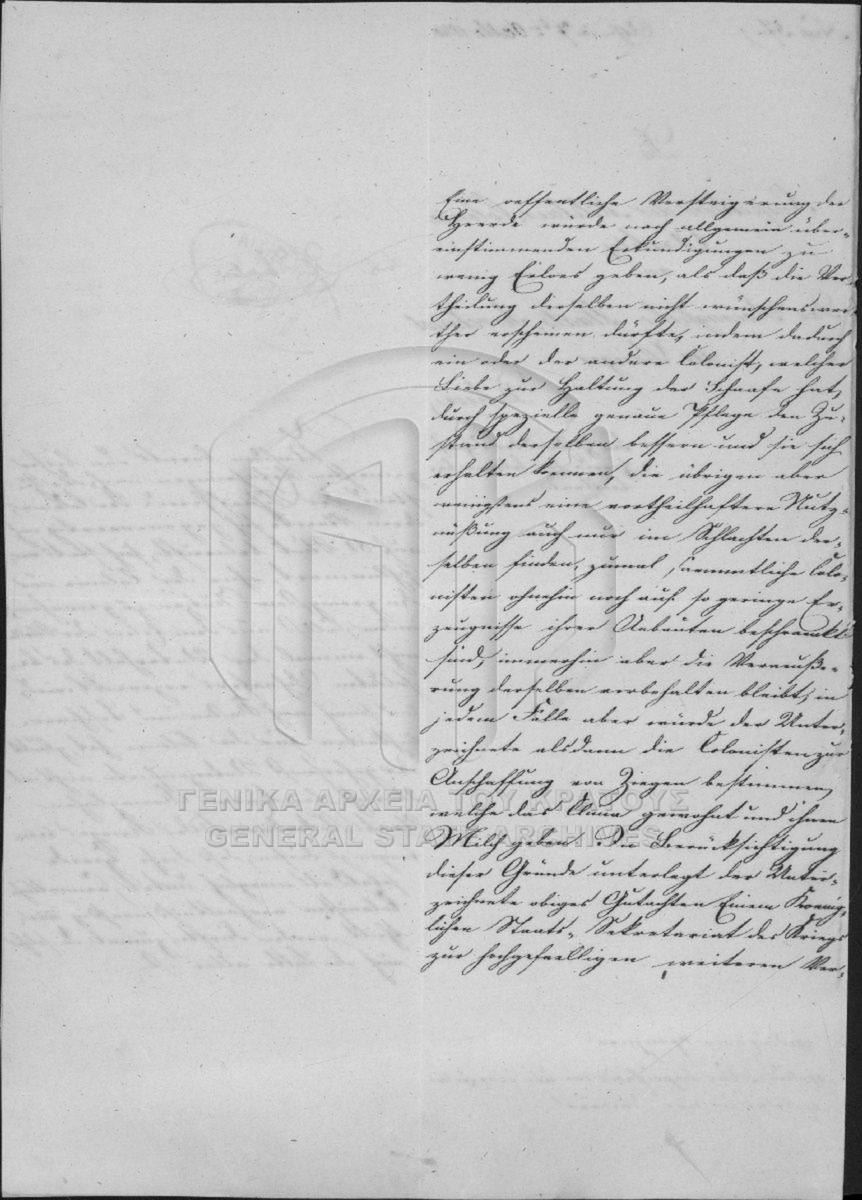 Eine oeffentliche Versteigerung der
Heerde würde nach allgemein über-
einstimmenden Erkundigungen zu
wenig Erloes geben, als daß die Ver-
theilung derselben nicht wünschenswer-
ther erscheinen dürfte, indem dadurch
ein oder der andere Colonist, welcher
Liebe zur Haltung der Schaafe hat,
durch spezielle genaue Pflege den Zu-
stand derselben bessern und sie sich
erhalten koennen, die übrigen aber
wenigstens eine vortheilhaftere Nutz-
nießung auch nur im Schlachten der-
selben finden, zumal saemmtliche Colo-
nisten ohnehin noch auf so geringe Er-
zeugnisse ihrer Anbauten beschraenkt
sind, immerhin aber die Veräuße-
rung derselben vorbehalten bleibt, in
jedem Falle aber würde der Unter-
zeichnete alsdann die Colonisten zur
Anschaffung von Ziegen bestimmen,
welche das Clima gewohnt und ihnen
Milch geben. Die Berücksichtigung
dieser Gründe unterlegt der Unter-
zeichnete obiges Gutachten Einem Koenig-
lichen Staats-Sekretariat des Kriegs
zur hochgefaelligen weiteren Ver-
ΓΕΝΙΚΑ ΑΡΧΕΙΑ ΤΟΥ ΚΡΑΤΟΥΣ
GENERAL STATE ARCHIVES